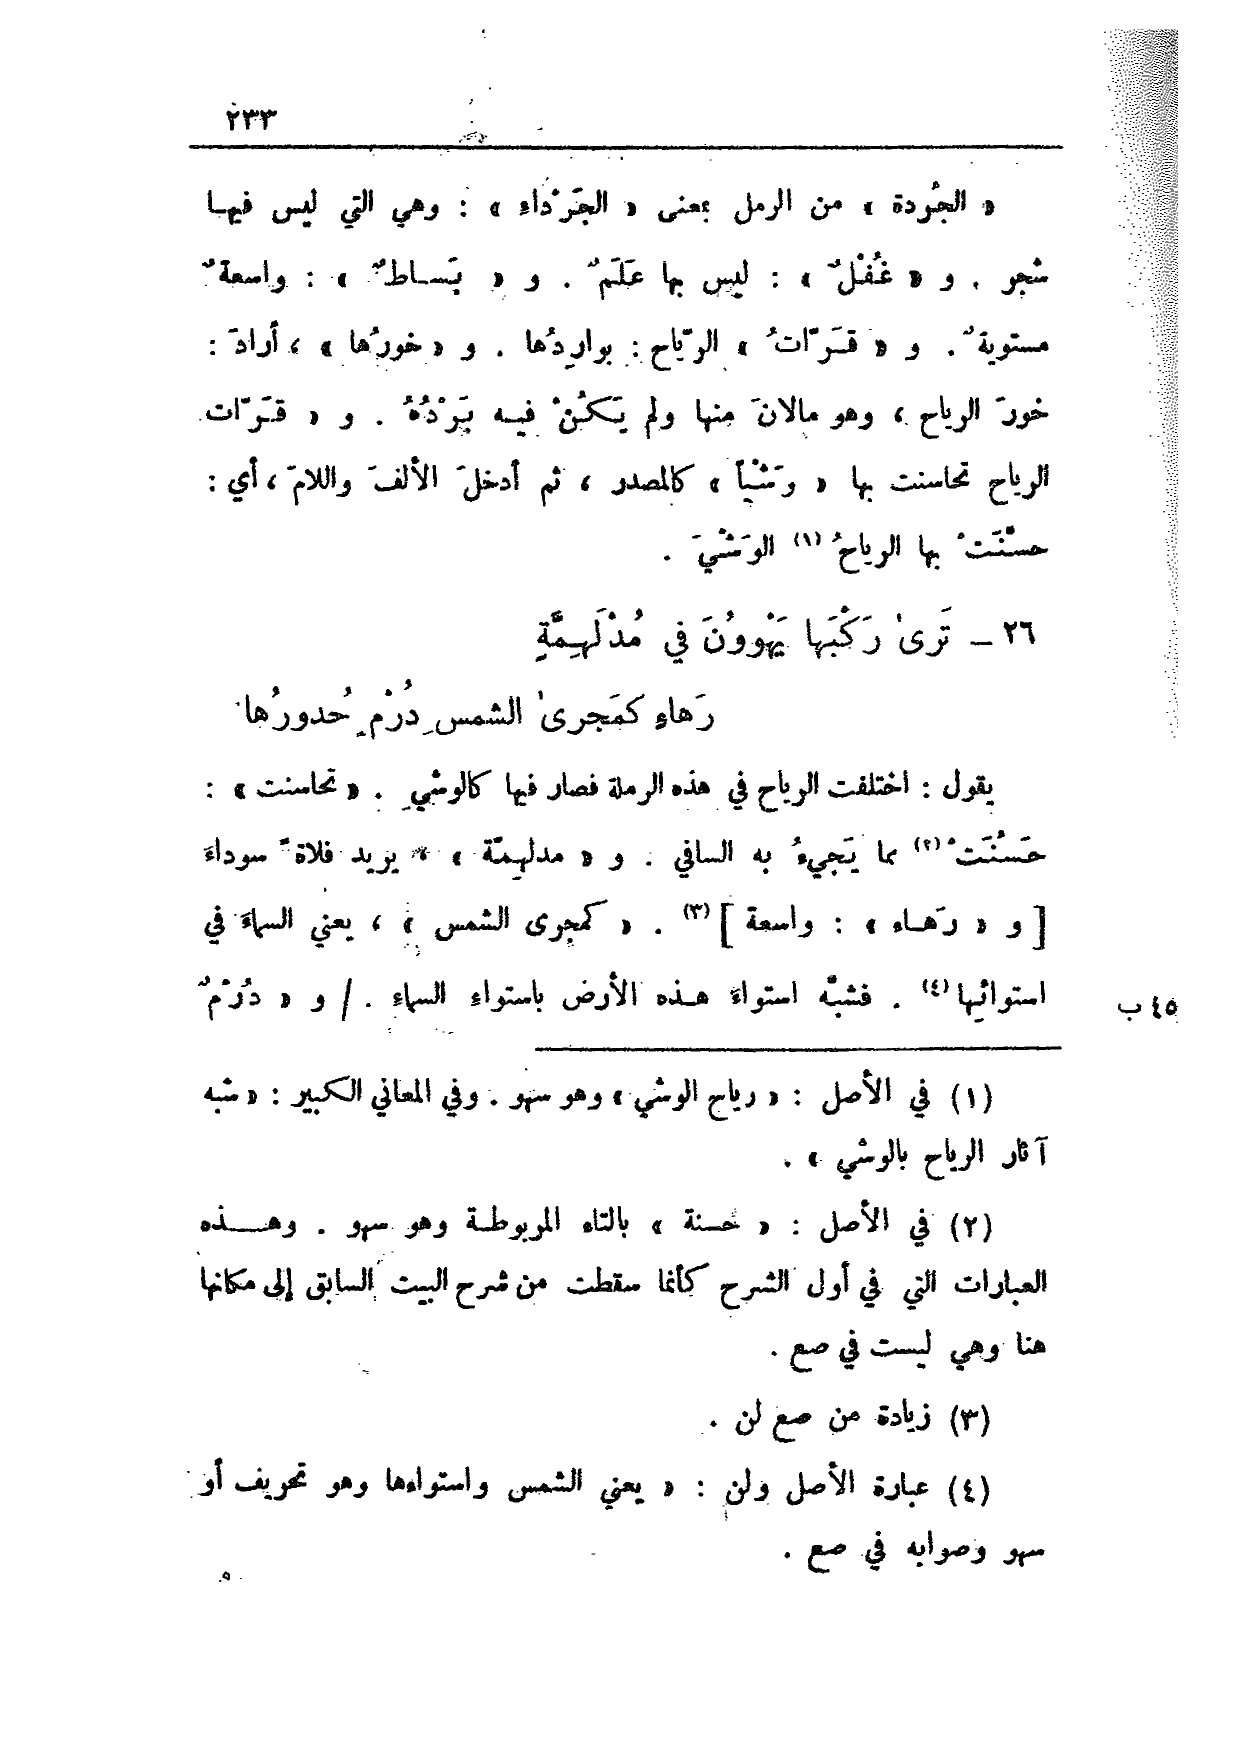 ٢٣٣
« الجُردة » من الرمل بمعنى « الجَرْداء » : وهي التي ليس فيها
شجر . و « غُفْلٌ » : ليس بها عَلَمٌ . و « بَساطٌ » : واسعةٌ
مستويةٌ . و « قَرّاتُ » الرّياح : بواردُها . و « خورُها » ، أرادَ :
خورَ الرياح ، وهو مالانَ منها ولم يَكُنْ فيه بَرْدُهُ . و « قَرّات
الرياح تحاسنت بها « وَشْياً » كالمصدر ، ثم أدخلَ الألفَ واللامَ ، أي :
حسّنَتْ بها الرياحُ (١) الوَشْيَ .
٢٦ – تَرىٰ رَكْبَها يَهْوونَ في مُدْلَهِمَّةٍ
رَهاءٍ كمَجرىٰ الشمسِ دُرْمٍ حُدورُها
يقول : اختلفت الرياح في هذه الرملة فصار فيها كالوشيِ . « تحاسنت » :
حَسُنَتْ (٢) بما يَجيءُ به السافي . و « مدلهمّة » ، يريد فلاةً سوداءَ
[ و « رَهاء » : واسعة ] (٣) . « كمجرى الشمس » ، يعني السماءَ في
استوائها (٤) . فشبَّه استواءَ هذه الأرض باستواءِ السماءِ . / و « دُرْمٌ
٤٥ ب
(١) في الأصل : « رياح الوشي » وهو سهو . وفي المعاني الكبير : « شبه
آثار الرياح بالوشي » .
(٢) في الأصل : « حسنة » بالتاء المربوطة وهو سهو . وهذه
العبارات التي في أول الشرح كأنما سقطت من شرح البيت السابق إلى مكانها
هنا وهي ليست في صع .
(٣) زيادة من صع لن .
(٤) عبارة الأصل ولن : « يعني الشمس واستواءها وهو تحريف أو
سهو وصوابه في صع .